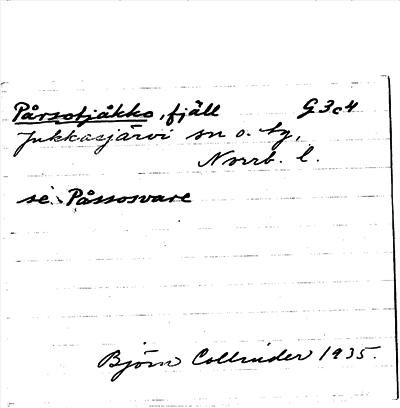 Pårsotjåkko, fjäll G3c4
Jukkasjärvi sn o. tg,
Norrb. l.
se Påssosvare
Björn Collinder 1935.